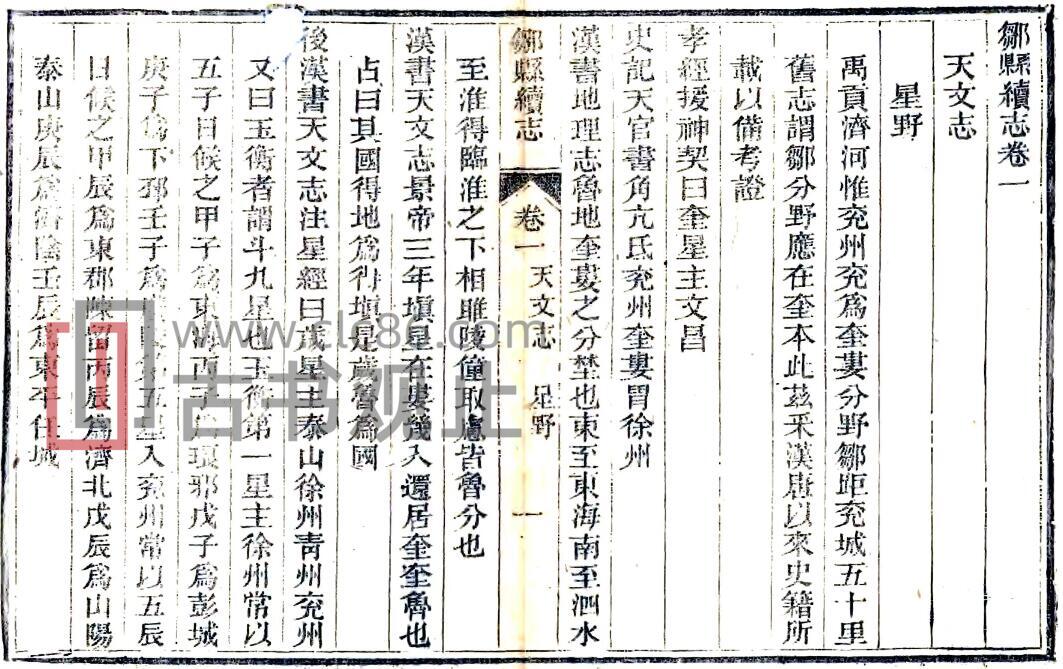 鄒縣續志卷一
天文志
星野
禹貢濟河惟兖州兖爲奎婁分野鄒距兖城五十里
舊志謂鄒分野應在奎本此茲采漢唐以來史籍所
載以備考證
孝經援神契曰奎星主文昌
史記天官書角亢氐兖州奎婁胃徐州
漢書地理志魯地奎婁之分埜也東至東海南至泗水
鄒縣續志 卷一 天文志 星野 一
至淮得臨淮之下相睢陵僮取慮皆魯分也
漢書天文志景帝三年塡星在婁幾入還居奎奎魯也
占曰其國得地爲得塡是歲魯爲國
後漢書天文志注星經曰歲星主泰山徐州靑州兖州
又曰玉衡者謂斗九星也玉衡第一星主徐州常以
五子日候之甲子爲東海丙子爲琅邪戊子爲彭城
庚子爲下邳壬子爲五星入兖州常以五辰
日候之甲辰爲東郡陳留丙辰爲濟北戊辰爲山陽
泰山庚辰爲濟陰壬辰爲東平任城
www.clc8.com
古书观止